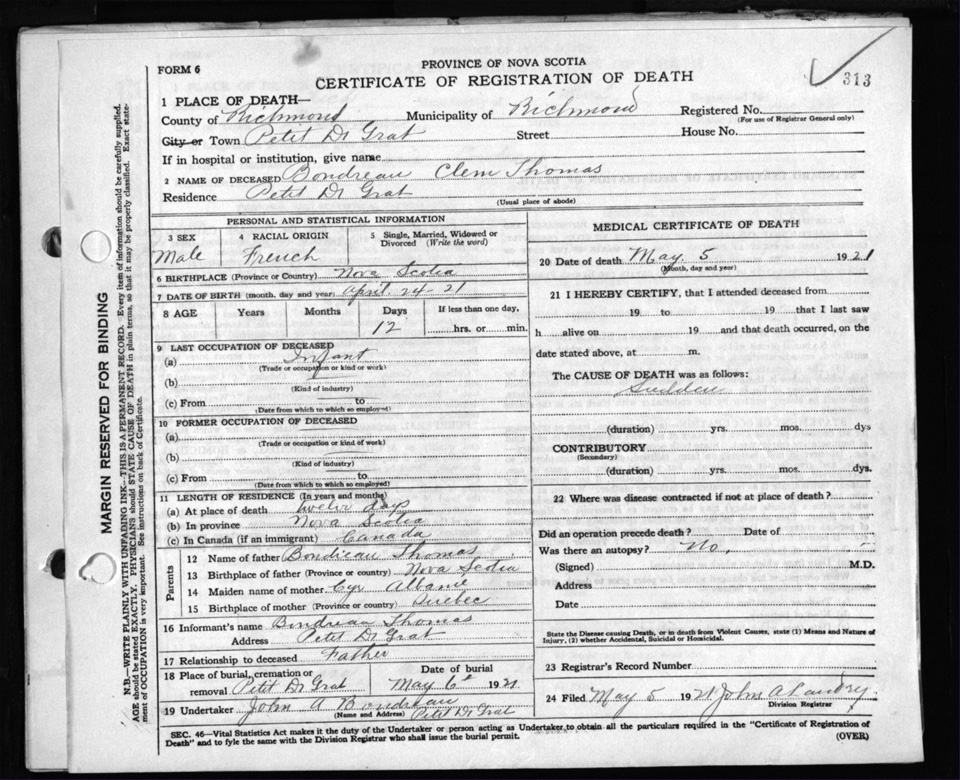 FORM 6
PROVINCE OF NOVA SCOTIA
CERTIFICATE OF REGISTRATION OF DEATH
313
1 PLACE OF DEATH—
County of Richmond Municipality of Richmond Registered No.
(For use of Registrar General only)
City or Town Petit De Grat Street House No.
If in hospital or institution, give name
2 NAME OF DECEASED Bondreau Clem Thomas
Residence Petit De Grat
(Usual place of abode)
PERSONAL AND STATISTICAL INFORMATION
3 SEX
Male
4 RACIAL ORIGIN
French
5 Single, Married, Widowed or
Divorced (Write the word)
6 BIRTHPLACE (Province or Country) Nova Scotia
7 DATE OF BIRTH (month, day and year) April 24-21
8 AGE Years Months Days If less than one day,
12 hrs. or min.
9 LAST OCCUPATION OF DECEASED
(a) Infant
(Trade or occupation or kind or work)
(b)
(Kind of industry)
(c) From to
(Date from which to which so employed)
10 FORMER OCCUPATION OF DECEASED
(a)
(Trade or occupation or kind of work)
(b)
(Kind of industry)
(c) From to
(Date from which to which so employed)
11 LENGTH OF RESIDENCE (In years and months)
(a) At place of death twelve days
(b) In province Nova Scotia
(c) In Canada (if an immigrant) Canada
Parents
12 Name of father Bondreau Thomas
13 Birthplace of father (Province or country) Nova Scotia
14 Maiden name of mother Cyr Albanie
15 Birthplace of mother (Province or country) Quebec
16 Informant's name Bondreau Thomas
Address Petit De Grat
17 Relationship to deceased Father
18 Place of burial, cremation or
removal Petit De Grat
Date of burial
May 6 1921
19 Undertaker John A Bondreau
(Name and Address) Petit De Grat
MEDICAL CERTIFICATE OF DEATH
20 Date of death May 5 1921
(Month, day and year)
21 I HEREBY CERTIFY, that I attended deceased from
19 to 19 that I last saw
h alive on 19 and that death occurred, on the
date stated above, at m.
The CAUSE OF DEATH was as follows:
Sudden
(duration) yrs. mos. dys
CONTRIBUTORY
(Secondary)
(duration) yrs. mos. dys.
22 Where was disease contracted if not at place of death?
Did an operation precede death? Date of
Was there an autopsy? No.
(Signed) M.D.
Address
Date
State the Disease causing Death, or in death from Violent Causes, state (1) Means and Nature of
Injury, (2) whether Accidental, Suicidal or Homicidal.
23 Registrar's Record Number
24 Filed May 5 1921 John A Landry
Division Registrar
SEC. 46—Vital Statistics Act makes it the duty of the Undertaker or person acting as Undertaker to obtain all the particulars required in the "Certificate of Registration of
Death" and to fyle the same with the Division Registrar who shall issue the burial permit.
(OVER)
MARGIN RESERVED FOR BINDING
N.B.—WRITE PLAINLY WITH UNFADING INK—THIS IS A PERMANENT RECORD. Every item of information should be carefully supplied.
AGE should be stated EXACTLY. PHYSICIANS should STATE CAUSE OF DEATH in plain terms, so that it may be properly classified. Exact state-
ment of OCCUPATION is very important. See instructions on back of Certificate.